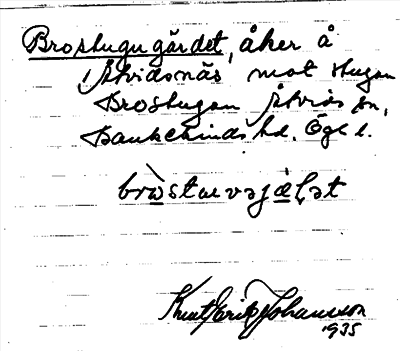 Brostugugärdet, åker å
Åtvidsnäs mot stugan
Brostugan Åtvids sn,
Bankekinds hd. Ögl.
bròstuvəjæ̀ḷət
Knut Erik Johansson
1935